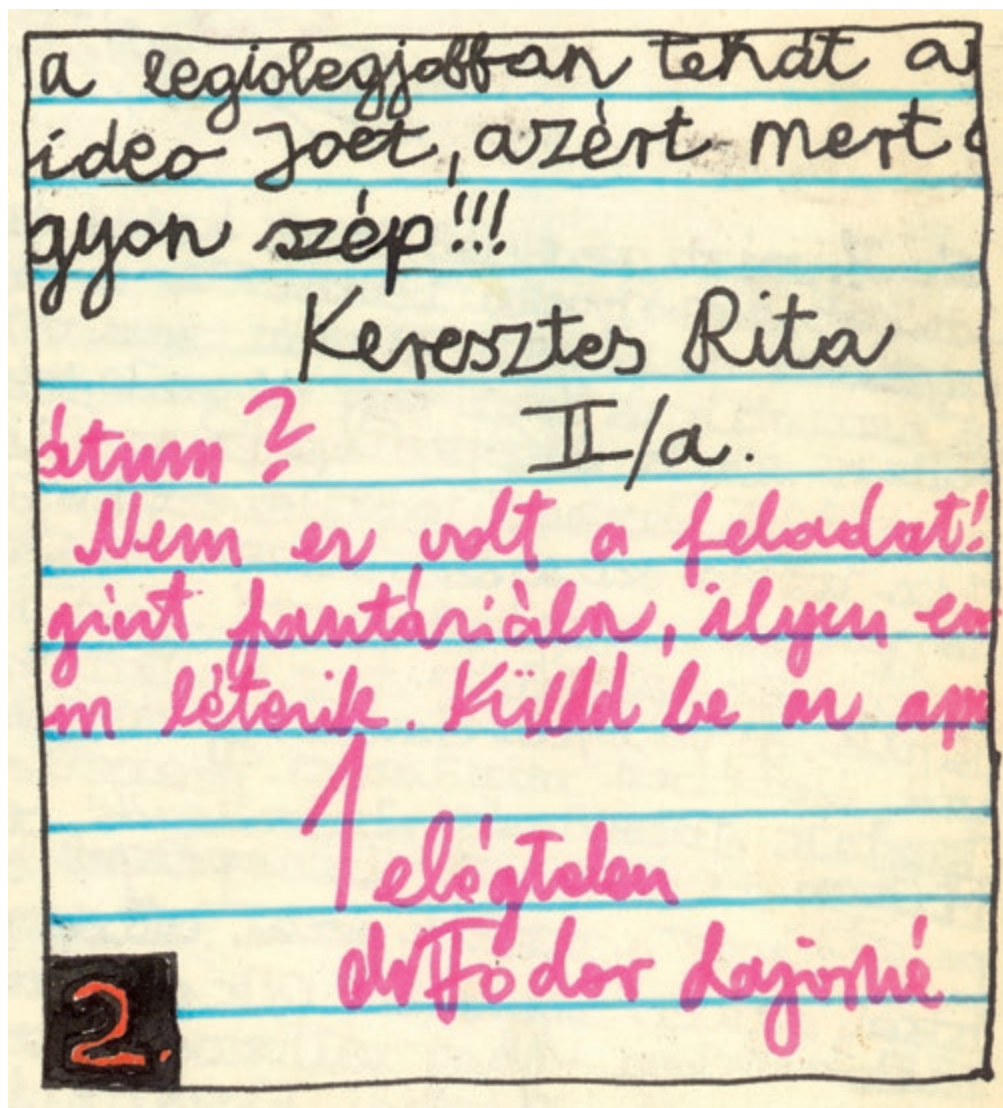 a legiolegjobban tehát a
ideo Joet, azért mert
gyon szép!!!
Keresztes Rita
II/a.
átum?
Nem ez volt a feladat!
gint fantáziálsz, ilyen em
m létezik. Küldd be az ap
1 elégtelen
dr Fodor Lajosné
2.